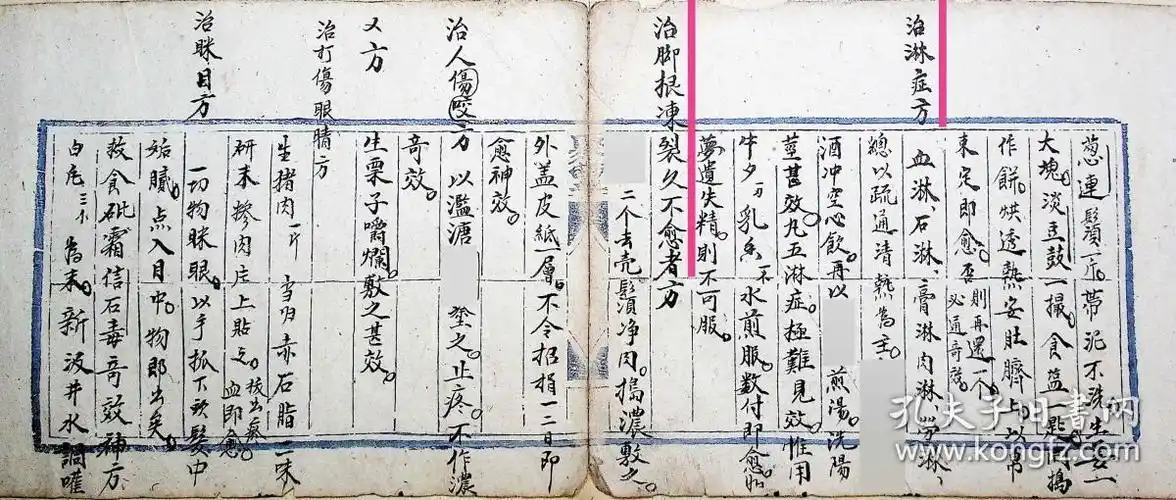 葱連鬚一斤。帶泥不洗生姜一
大塊。淡豆鼓一撮。食盐一匙。同搗
作餅。烘透熱安肚臍上。以帶
束定即愈。否則再還一个必通奇效。
治淋症方
血淋、石淋、膏淋肉淋、勞淋、
總以疏通清熱為主。
酒冲空心飲。再以 煎湯。洗陽
莖甚效。凡五淋症。極難見效。惟用
牛夕一刃乳香一不水煎服数付即愈。如
夢遺失精。則不可服。
治脚根凍裂久不愈者方
二个去壳。鬚净肉。搗濃敷之。
外盖皮紙一層。不令招損一二日即
愈神效。
治人傷咬方 以濫溏 塗之。止疼。不作濃
奇效。
又方
生栗子嚼爛。敷之甚效。
治打傷眼睛方
生猪肉一斤 當归赤石脂一味
研末摻肉庄上貼之。拔出瘀血即愈。
治眯目方
一切物眯眼。以手抓下头髮中
姤膩。点入目中。物即出矣。
救食砒霜信石毒奇效神方
白凡三小為末。新汲井水調嚾
孔夫子旧书网
www.kongfz.com